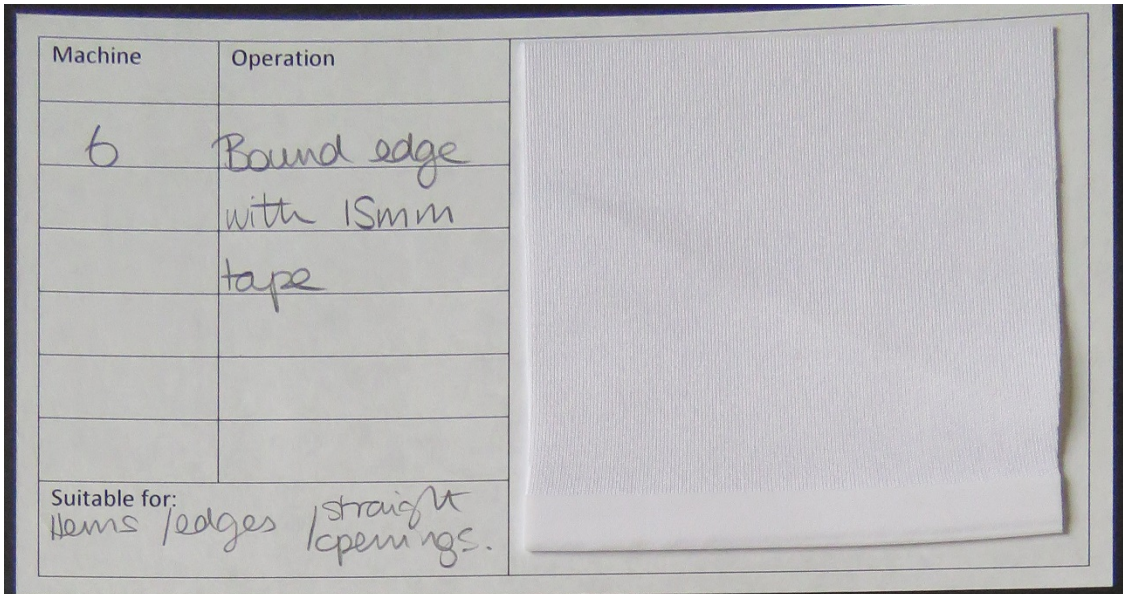 Machine Operation
6 Bound edge
with 15mm
tape
Suitable for:
Hems /edges /straight
openings.